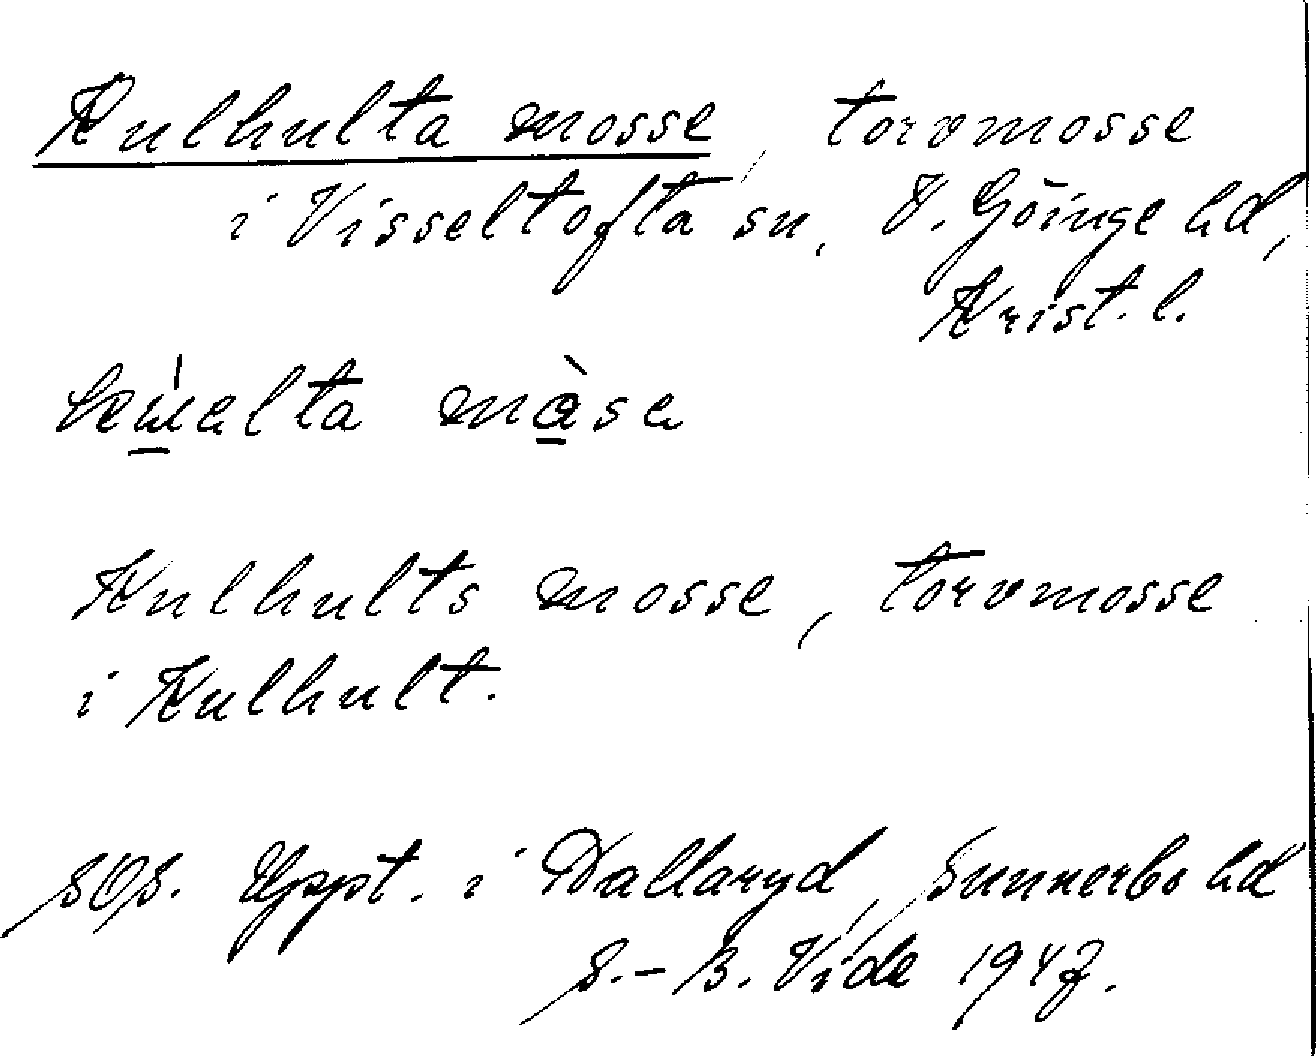 Kulhulta mosse, torvmosse
i Visseltofta sn, V. Göinge hd,
Krist. l.
màse
Kulhults mosse, torvmosse
i Kulhult.
SOS. Uppt. i Hallaryd, Sunnerbo hd
S.-B. Vide 1947.